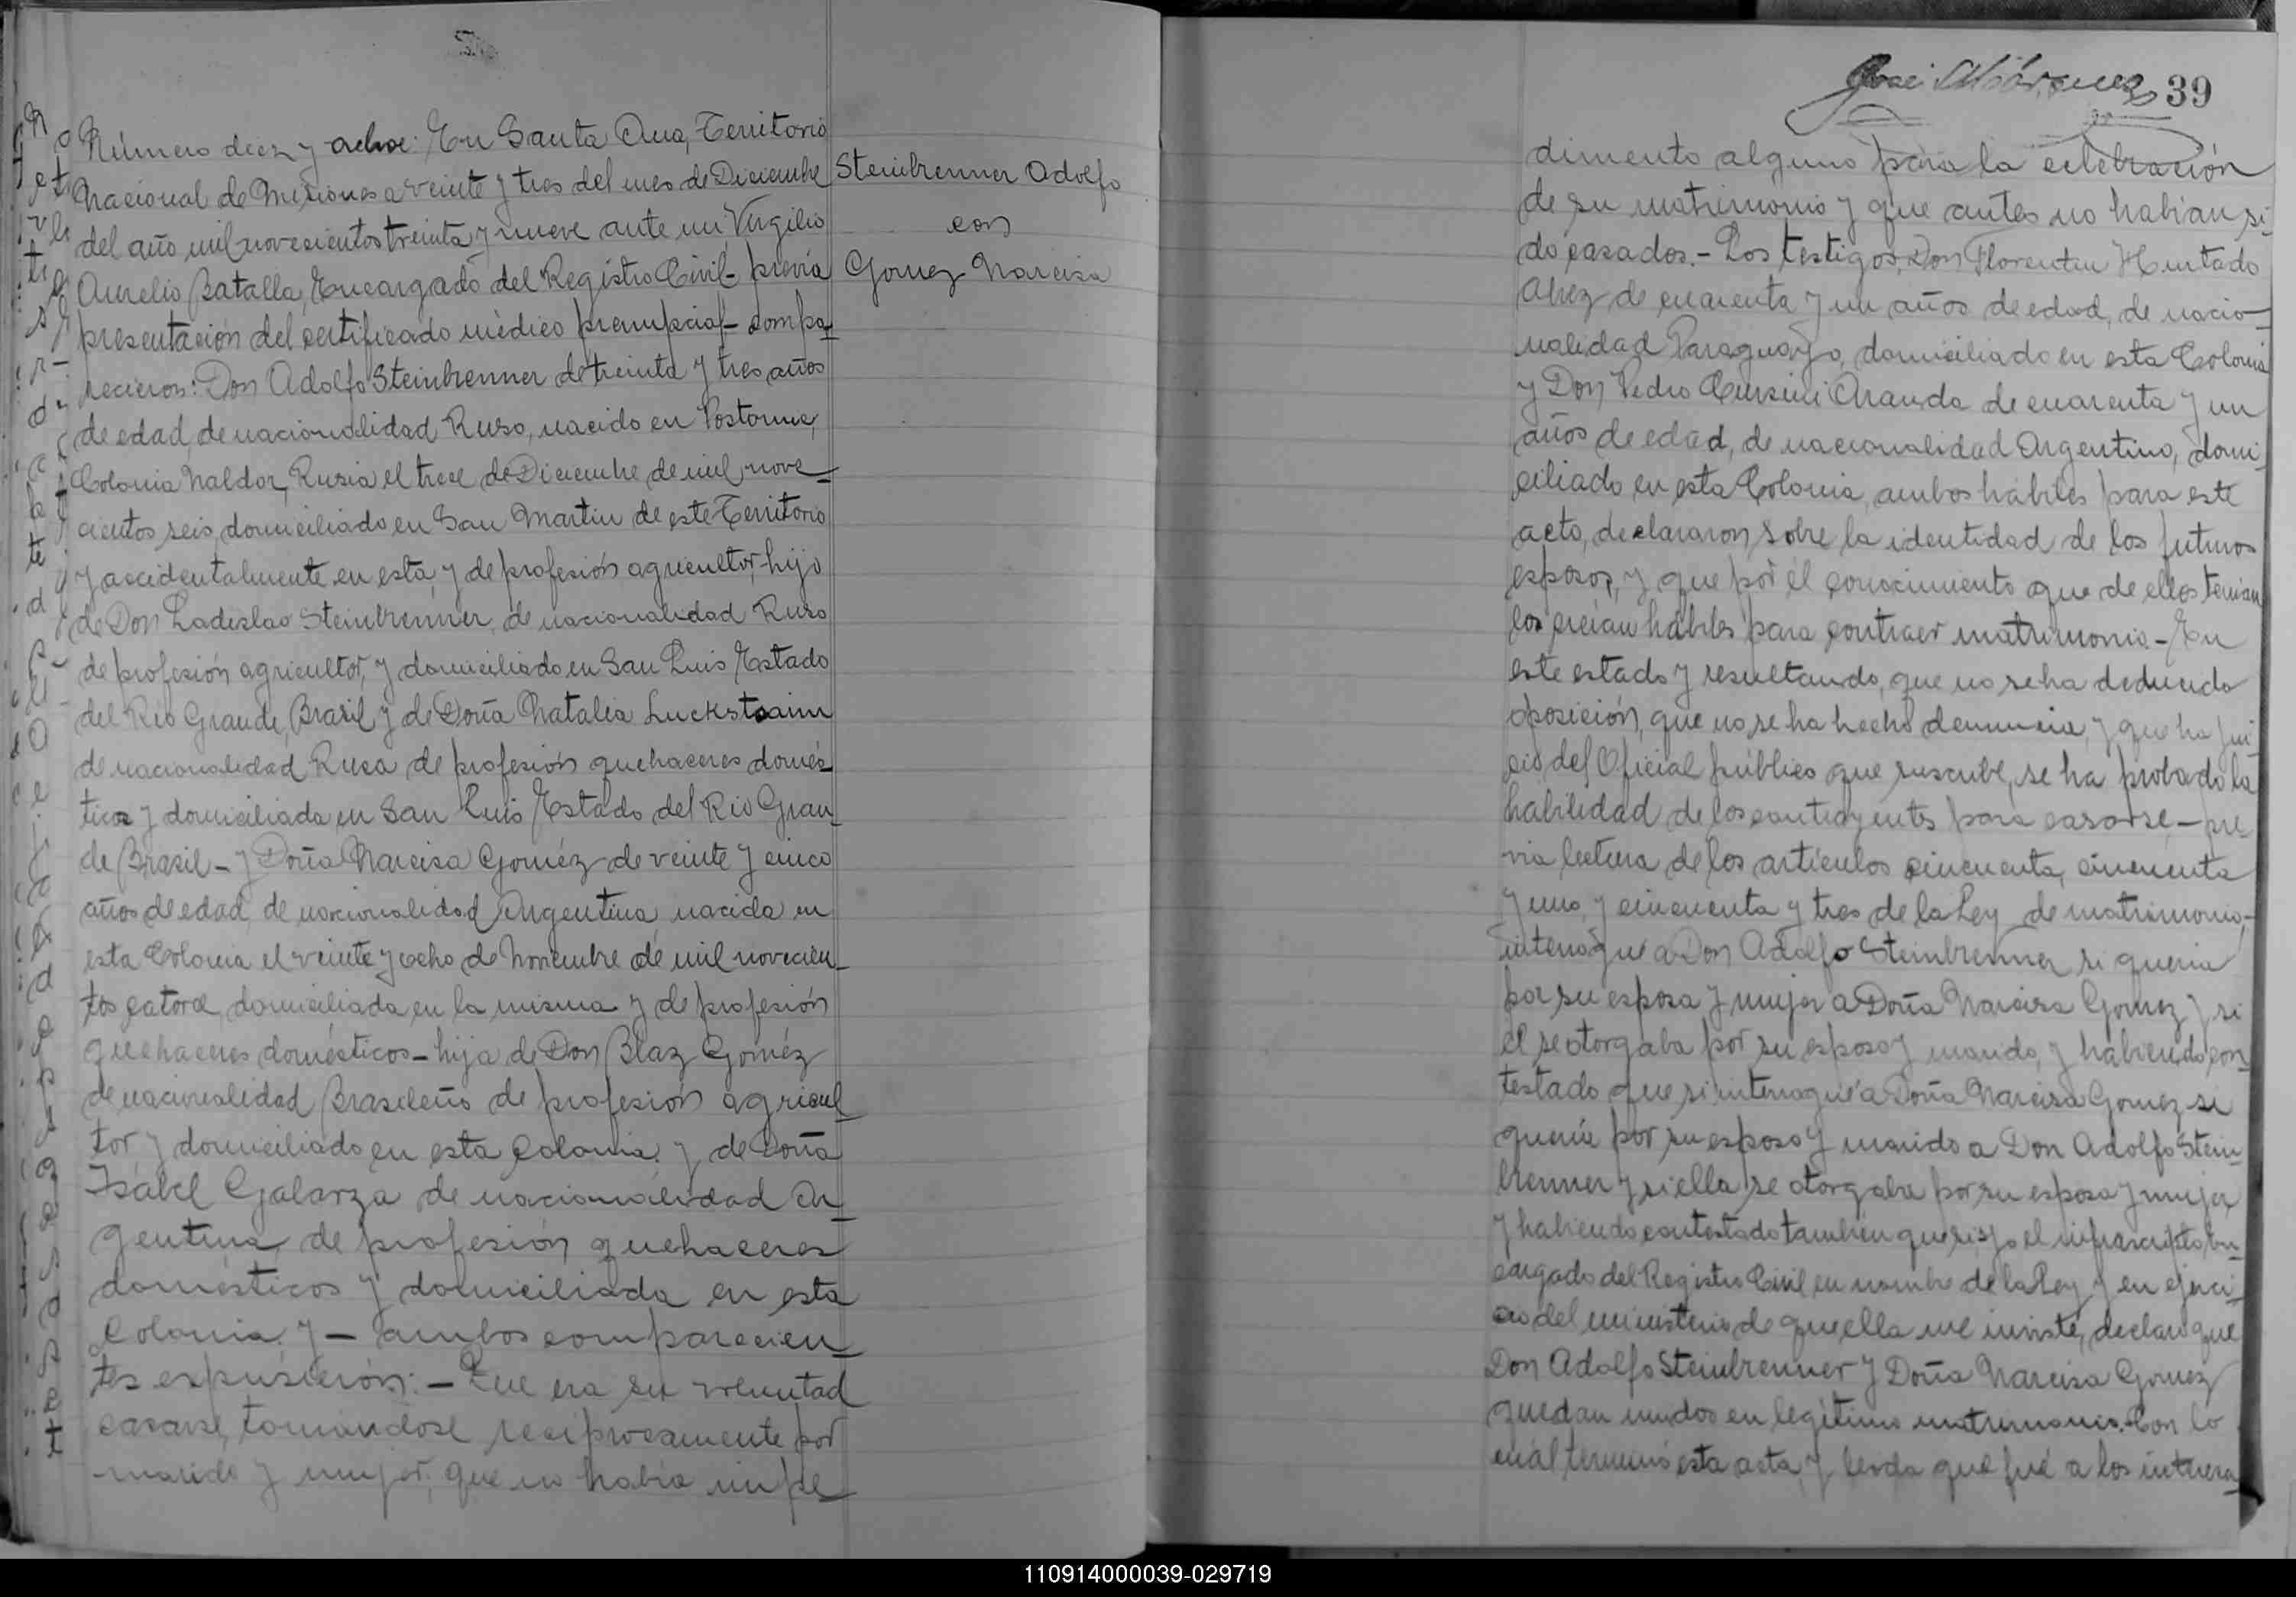 Número diez y ocho: En Santa Ana, Territorio
Nacional de Misiones a veinte y tres del mes de Diciembre
del año mil novecientos treinta y nueve ante mi Virgilio
Aurelio Batalla, Encargado del Registro Civil- previa
presentación del certificado médico prenupcial- compa-
recieron: Don Adolfo Steinbrenner de treinta y tres años
de edad, de nacionalidad Ruso, nacido en
Colonia Rusia el trece de Diciembre de mil nove-
cientos seis, domiciliado en San Martin de este Territorio
y accidentalmente en esta y de profesión agricultor, hijo
de Don Ladislao Steinbrenner, de nacionalidad Ruso
de profesión agricultor, y domiciliado en San Luis Estado
del Rio Grande, Brasil y de Doña Natalia Luckstaim
de nacionalidad Rusa de profesión quehaceres domés-
ticos y domiciliada en San Luis Estado del Rio Gran-
de Brasil - y Doña Narcisa Goméz de veinte y cinco
años de edad, de nacionalidad Argentina, nacida en
esta Colonia el veinte y ocho de Noviembre de mil novecien-
tos catorce, domiciliada en la misma y de profesión
quehaceres domésticos - hija de Don Blaz Goméz
de nacionalidad Brasileño de profesión agricul-
tor y domiciliado en esta Colonia. y de Doña
Isabel Galarza de nacionalidad Ar-
gentina, de profesión quehaceres
domésticos y domiciliada en esta
Colonia. y - ambos comparecien-
tes expusieron: - Que era su voluntad
casarse, tomandose reciprocamente por
marido y mujer, que no habia impe-
Steinbrenner Adolfo
con
Gomez Narcisa
39
dimento alguno para la celebración
de su matrimonio y que antes no habian si-
do casados.- Los testigos, Don Florentin Hurtado
de cuarenta y un años de edad, de nacio-
nalidad Paraguayo, domiciliado en esta Colonia
y Don Pedro Aranda de cuarenta y un
años de edad, de nacionalidad Argentino, domi-
ciliado en esta Colonia, ambos hábiles para este
acto, declararon sobre la identidad de los futuros
esposos, y que por el conocimiento que de ellos tenian
los creian hábiles para contraer matrimonio.- En
este estado y resultando, que no se ha deducido
oposición, que no se ha hecho denuncia, y que ha jui-
cio del Oficial público que suscribe, se ha probado la
habilidad de los contrayentes para casarse - pre-
via lectura de los articulos cincuenta, cincuenta
y uno, y cincuenta y tres de la Ley de matrimonio,-
interrogué a Don Adolfo Steinbrenner si queria
por su esposa y mujer a Doña Narcisa Gomez y si
el se otorgaba por su esposo y marido, y habiendo con-
testado que si interrogué a Doña Narcisa Gomez si
queria por su esposo y marido a Don Adolfo Stein-
brenner y si ella se otorgaba por su esposa y mujer
y habiendo contestado tambien que si yo el infrascripto, En-
cargado del Registro Civil en nombre de la Ley y en ejerci-
cio del ministerio de que ella me inviste, declaro que
Don Adolfo Steinbrenner y Doña Narcisa Gomez
quedan unidos en legitimo matrimonio.- Con lo
cual terminó esta acta, y leida que fué a los interes-
110914000039-029719